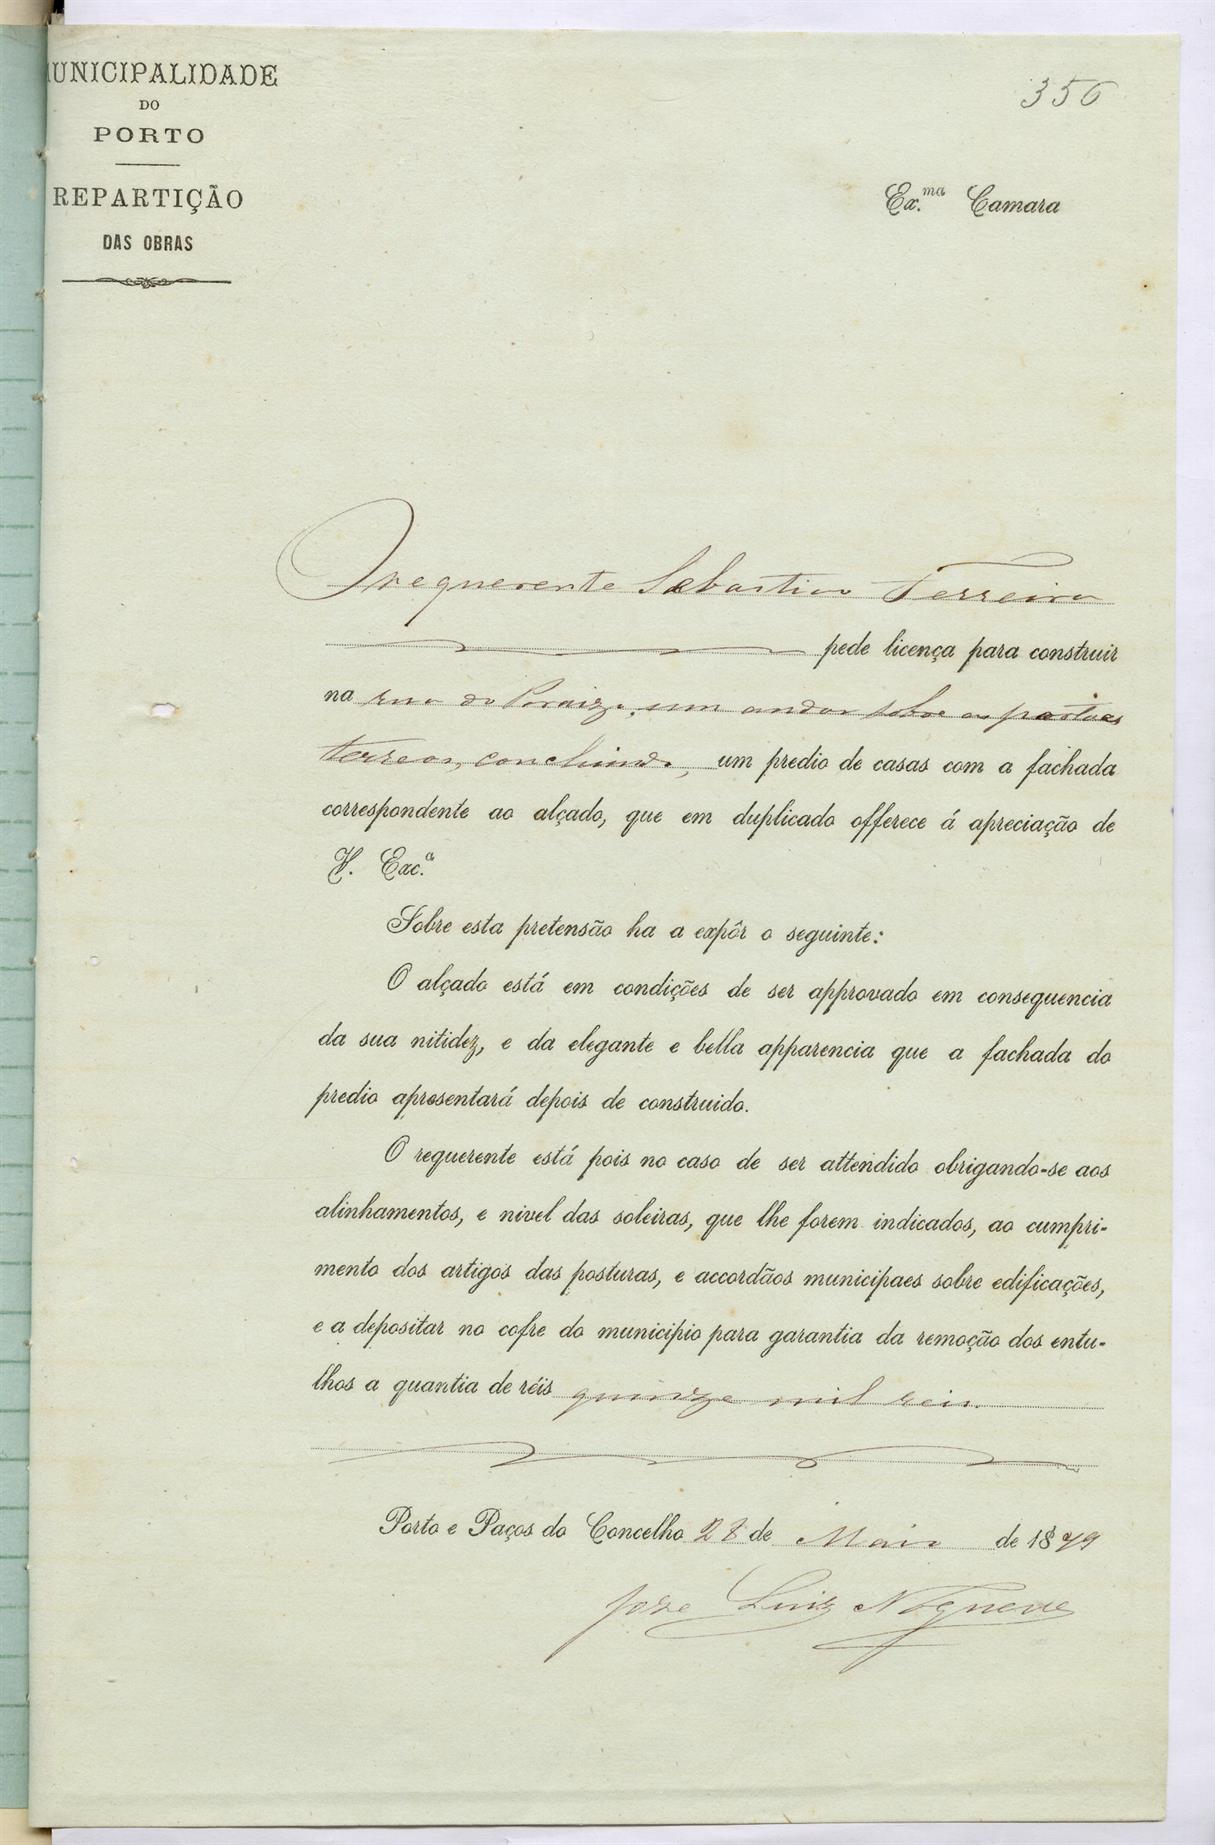 MUNICIPALIDADE
DO
PORTO
REPARTIÇÃO
DAS OBRAS
356
Ex.ma Camara
O requerente Sebastião Ferreira
pede licença para construir
na rua do Paraizo, um andar sobre as partes
terreas, concluindo, um predio de casas com a fachada
correspondente ao alçado, que em duplicado offerece á apreciação de
V. Exc.a
Sobre esta pretensão ha a expôr o seguinte:
O alçado está em condições de ser approvado em consequencia
da sua nitidez, e da elegante e bella apparencia que a fachada do
predio apresentará depois de construido.
O requerente está pois no caso de ser attendido obrigando-se aos
alinhamentos, e nivel das soleiras, que lhe forem indicados, ao cumpri-
mento dos artigos das posturas, e accordãos municipaes sobre edificações,
e a depositar no cofre do municipio para garantia da remoção dos entu-
lhos a quantia de réis quinze mil reis.
Porto e Paços do Concelho 28 de Maio de 1879
José Luiz Nogueira